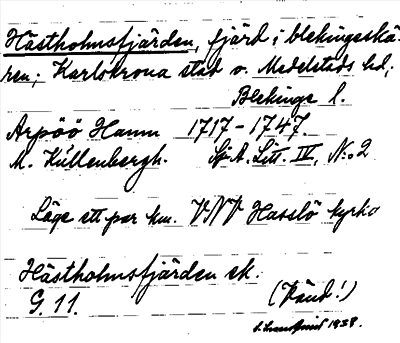 Hästholmsfjärden, fjärd i blekingeskä-
ren; Karlskrona stad o. Medelstads hd;
Blekinge l.
Arpöö Hamn 1717-1747.
M. Küllenbergh. Sj.A. Litt. IV, N:o 2
Läge ett par km. VNV Hasslö kyrka
Hästholmsfjärden ek.
G. 11. (Känd!)
1938.